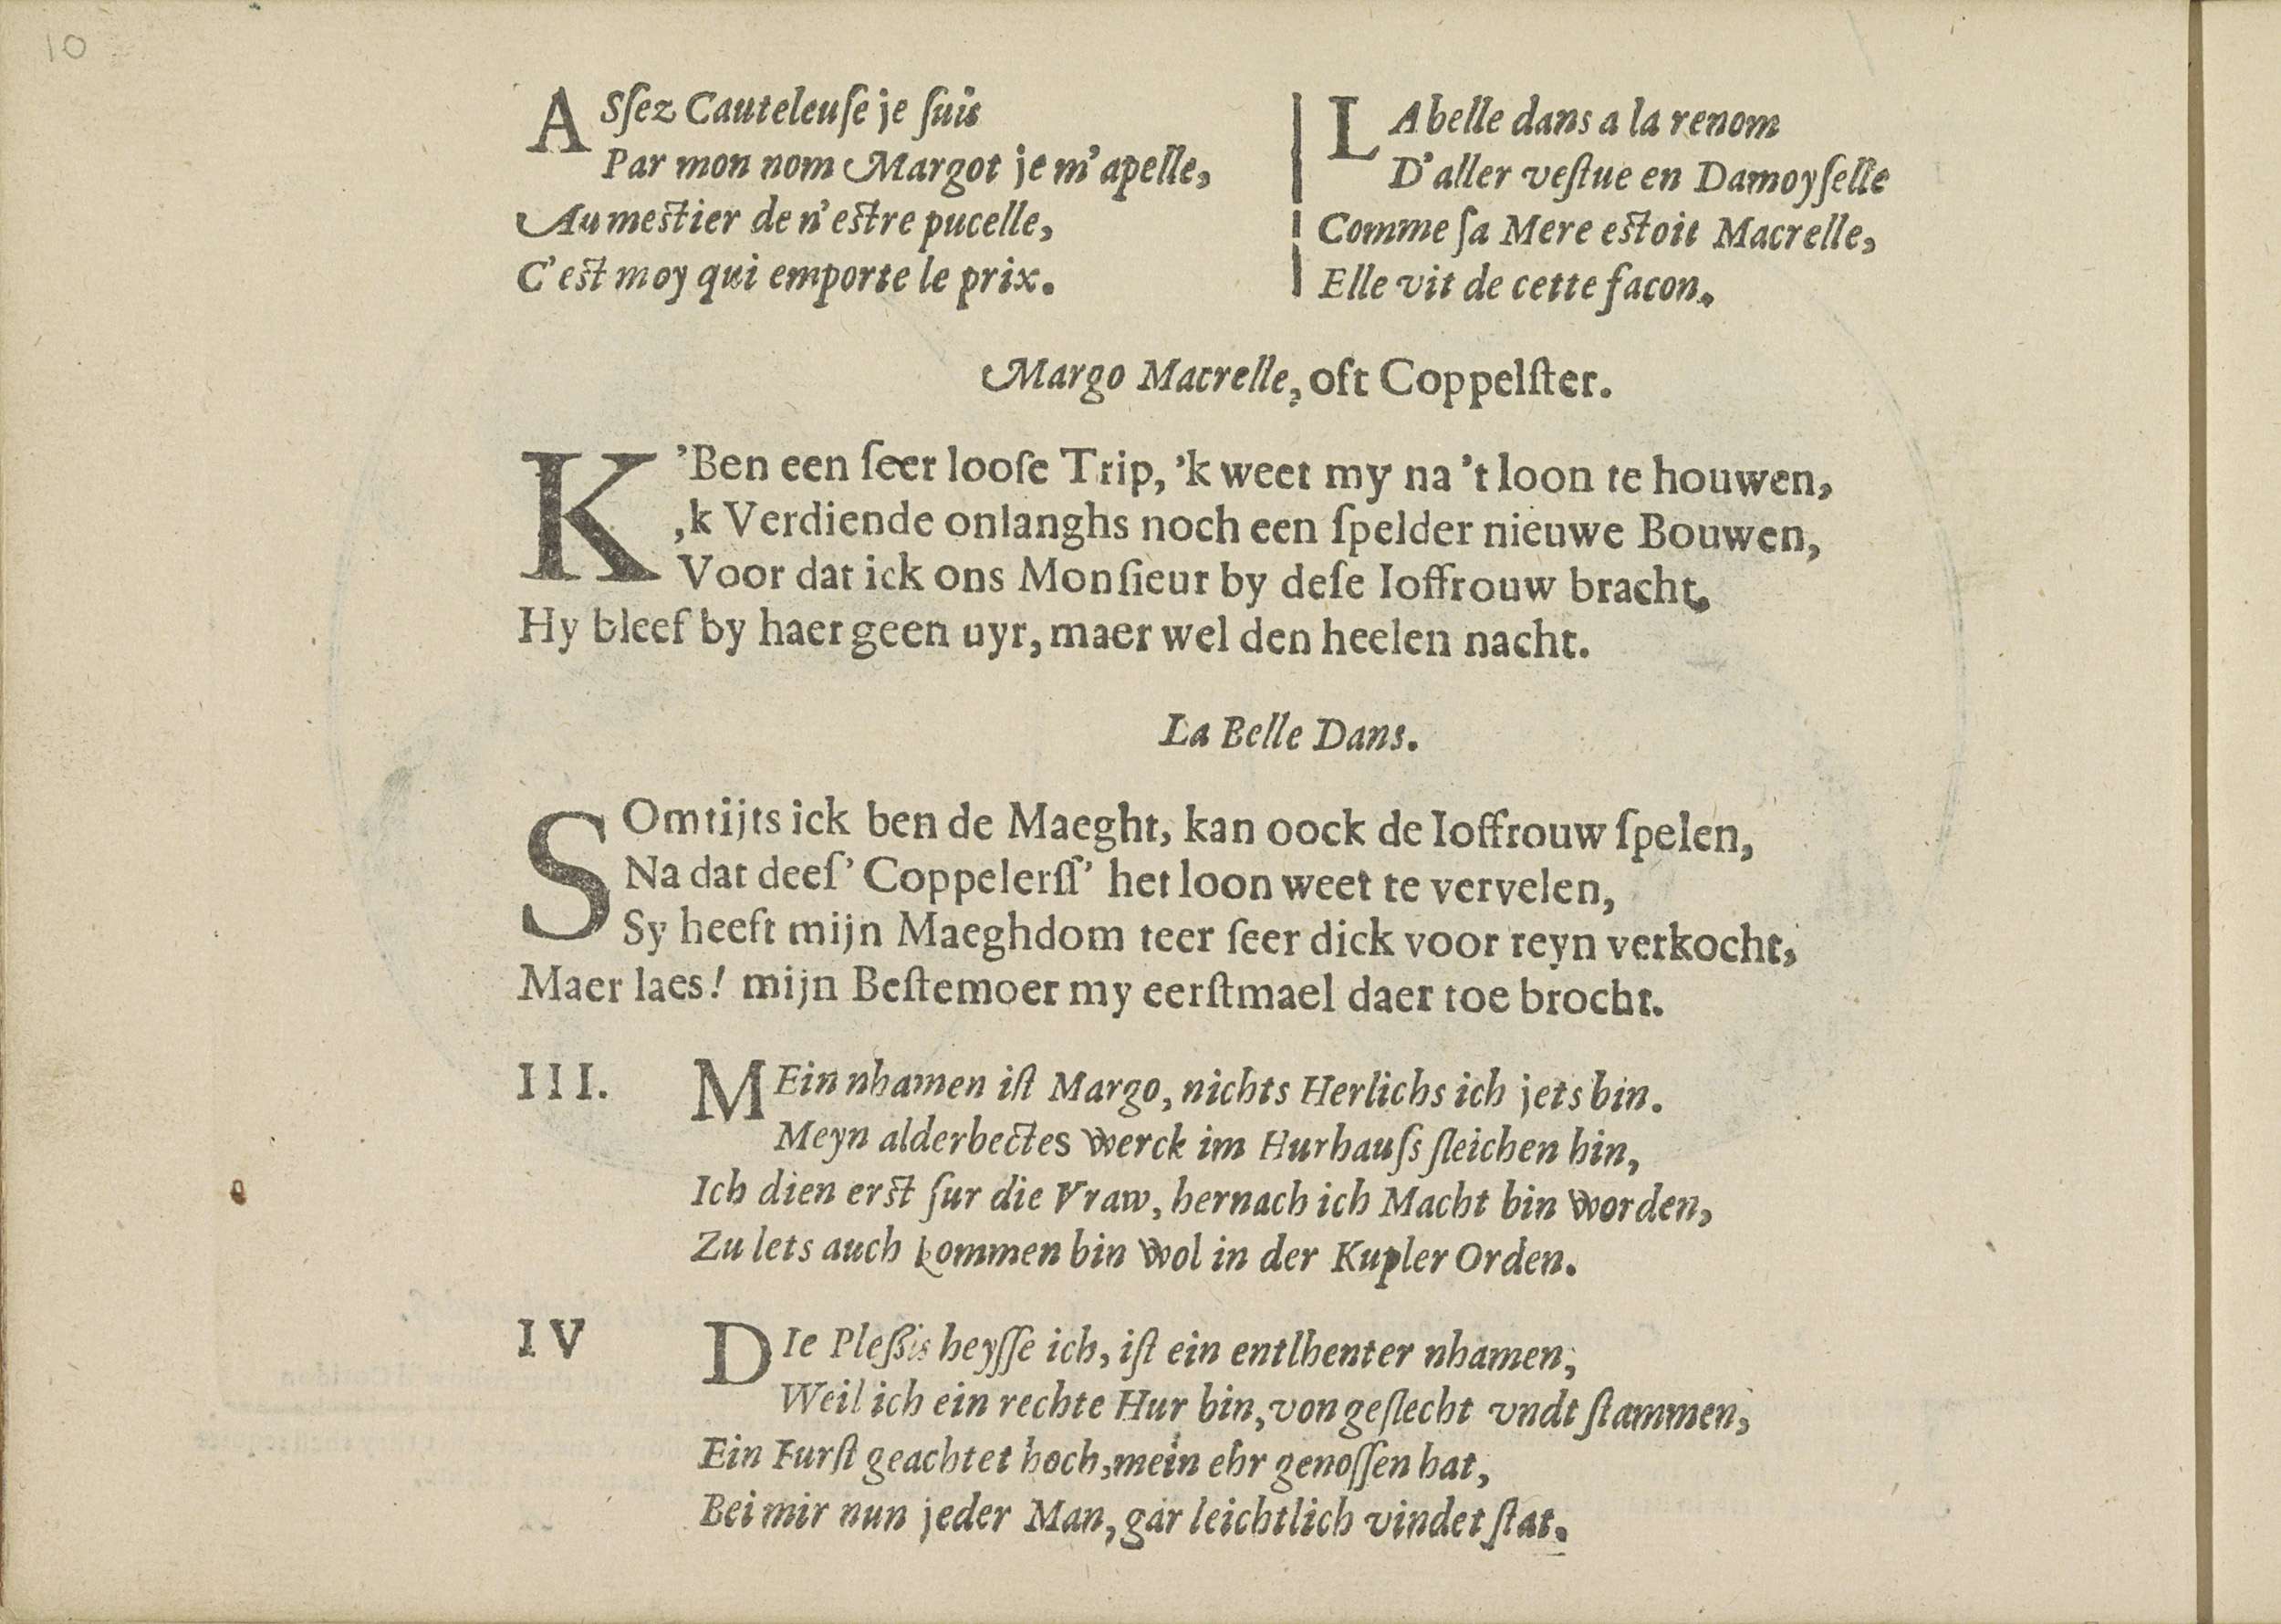 10
ASſez Cauteleuſe je ſuis
Par mon nom Margot je m'apelle,
Au mestier de n'estre pucelle,
C'est moy qui emporte le prix.
LA belle dans a la renom
D'aller veſtue en Damoyſelle
Comme ſa Mere estoit Macrelle,
Elle vit de cette facon.
Margo Macrelle, oft Coppelſter.
K'Ben een ſeer looſe Trip, 'k weet my na 't loon te houwen,
,k Verdiende onlanghs noch een ſpelder nieuwe Bouwen,
Voor dat ick ons Monſieur by deſe Ioffrouw bracht,
Hy bleef by haer geen uyr, maer wel den heelen nacht.
La Belle Dans.
SOmtijts ick ben de Maeght, kan oock de Ioffrouw ſpelen,
Na dat deeſ' Coppelerſſ' het loon weet te vervelen,
Sy heeft mijn Maeghdom teer ſeer dick voor reyn verkocht,
Maer laes! mijn Beſtemoer my eerſtmael daer toe brocht.
III. MEin nhamen iſt Margo, nichts Herlichs ich jets bin.
Meyn alderbectes werck im Hurhauſs ſleichen hin,
Ich dien erst fur die Vraw, hernach ich Macht bin worden,
Zu lets auch kommen bin wol in der Kupler Orden.
IV DIe Pleßis heyſſe ich, iſt ein entlhenter nhamen,
Weil ich ein rechte Hur bin, von geſlecht vndt ſtammen,
Ein Furſt geachtet hoch, mein ehr genoſſen hat,
Bei mir nun jeder Man, gar leichtlich vindet ſtat.